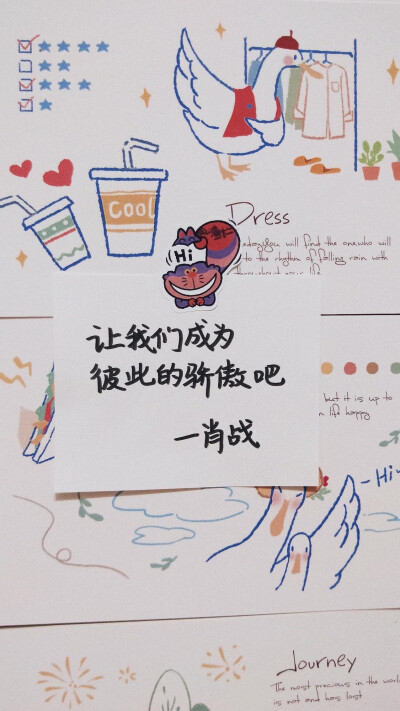 COOL
Dress
you will find the one who will
to the rhythm of falling rain with
Hi
让我们成为
彼此的骄傲吧
—肖战
but it is up to
life happy
-Hi~
Journey
The most precious in the world
is not and has lost